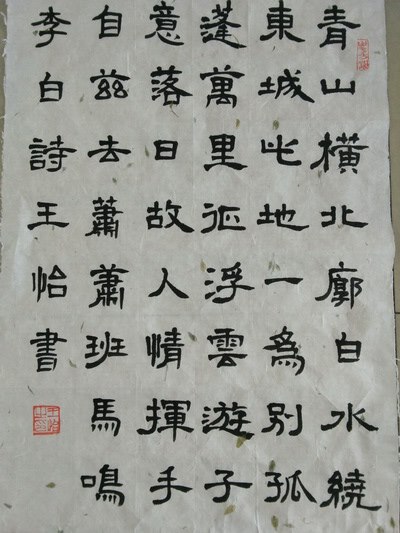 青山橫北廓白水繞
東城此地一為別孤
蓬萬里征浮雲游子
意落日故人情揮手
自茲去蕭蕭班馬鳴
李白詩王怡書